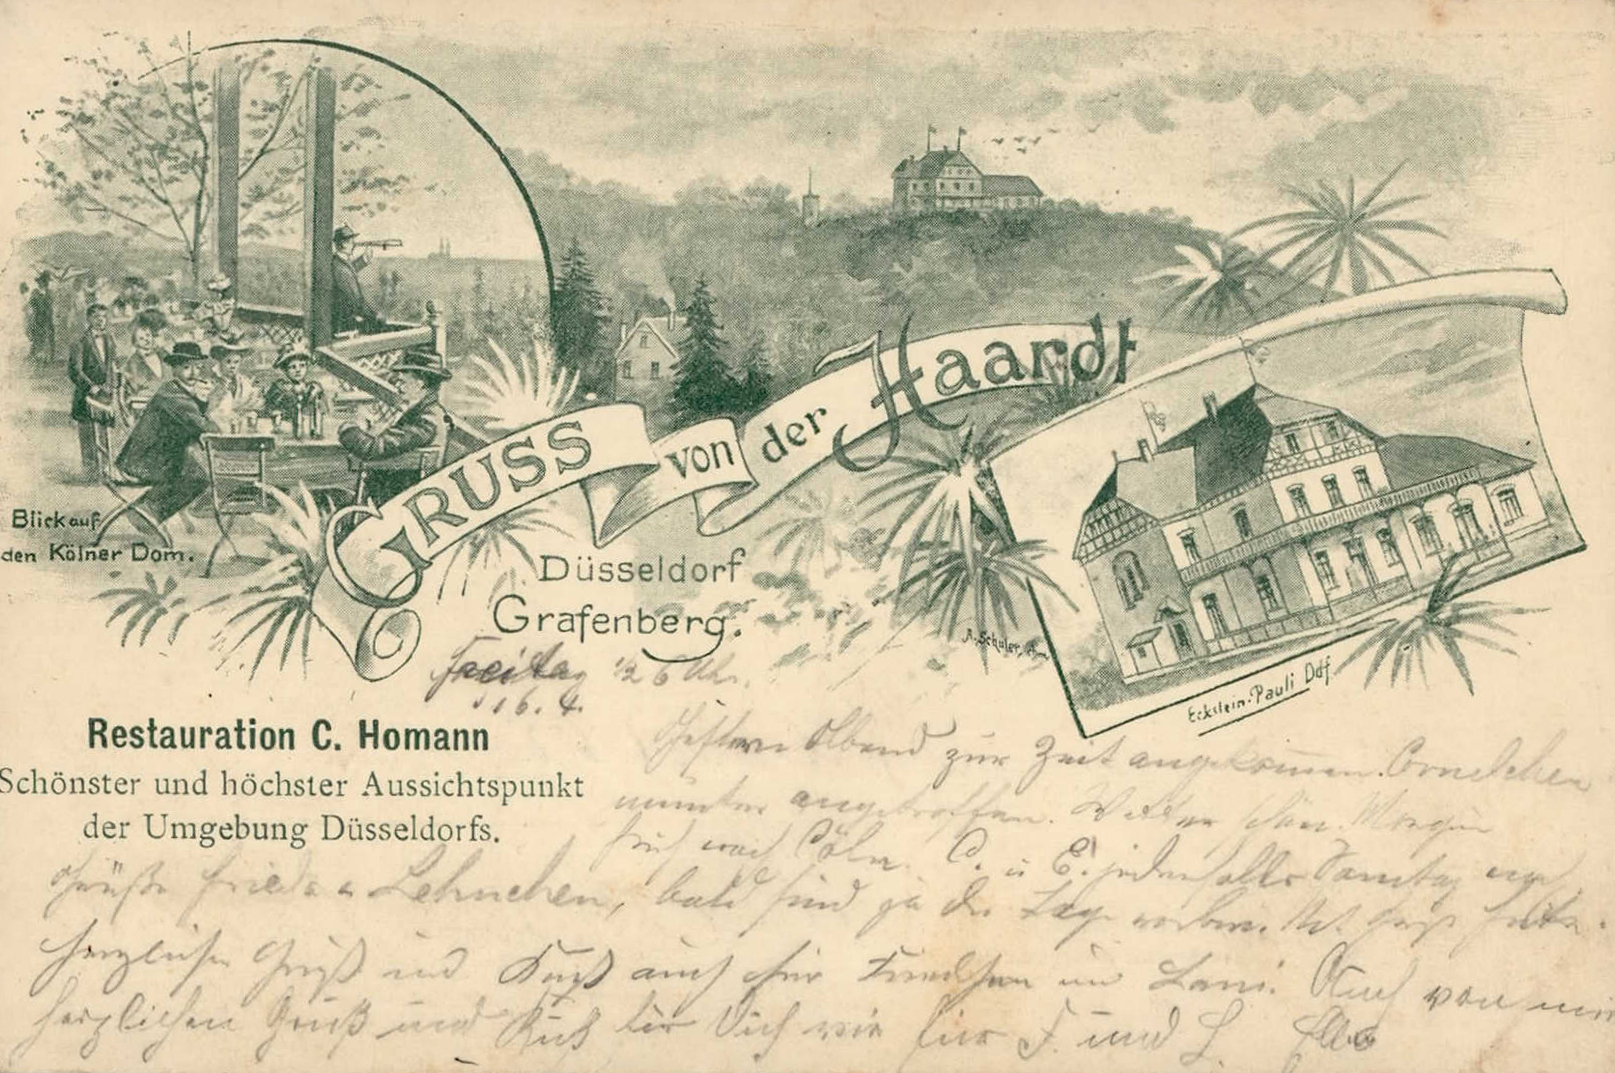 GRUSS von der Haardt
Blick auf
den Kölner Dom.
Düsseldorf
Grafenberg.
A. Schuler,
Eckstein-Pauli Ddf.
Freitag ½ 6 Uhr.
16. 4.
Restauration C. Homann
Schönster und höchster Aussichtspunkt
der Umgebung Düsseldorfs.
Gestern Abend zur Zeit angekommen.
munter angetroffen. Wetter schön. Morgen
früh nach Cöln. C. u E. jedenfalls Samstag
Grüße Frieda Lehnchen, bald sind ja die Tage vorbei.
herzlichen Gruß und Kuß auch für Auch von mir
herzlichen Gruß und Kuß für Dich wie für F. und L.